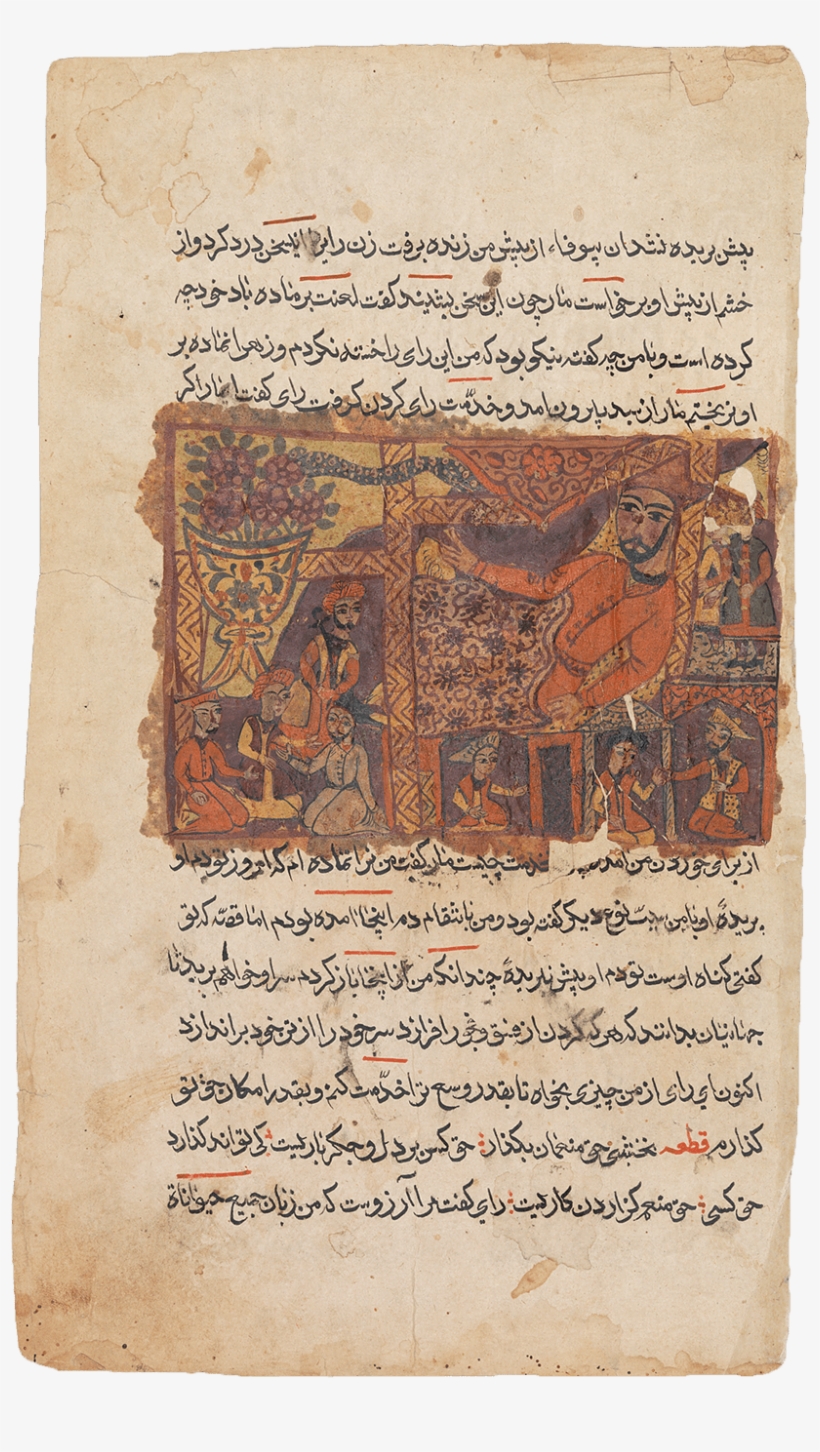 پیش بریده نشد ان بیوفاء از پیش من زنده برفت زن را ازین سخن درد کرد و از
خشم از پیش او برخاست مار چون این سخن بشنید گفت لعنت بر ماده باد خود چه
کرده است و با من چه گفته نیکو بود که من این رای را خسته نکردم و زهر انماده بر
او نریختم مار از سبد بیرون امد و خدمت رای کردن گرفت رای گفت ای مار اگر
از برای خوردن من امده خدمت چیست مار گفت من نر انماده ام که امروز تو دم او
بریدهٔ او با من نوع دیگر گفته بود و من بانتقام دم اینجا امده بودم اما قصه که تو
گفتی گناه اوست تو دم او پیش نبریدهٔ چندانکه من از اینجا باز کردم سر او خواهم برید تا
جهانیان بدانند که هر که گردن از فسق و فجور افرازد سر خود را از تن خود براندازد
اکنون ای رای از من چیزی بخواه تا بقدر وسع ترا خدمت کنم و بقدر امکان حق تو
گذارم قطعه نخشبی حق منعمان بگذار حق کس بر دل و جگر باریست کی تواند گذارد
حق کسی حق منعم گزاردن کاریست رای گفت مرا آرزوست که من زبان جمیع حیوانات